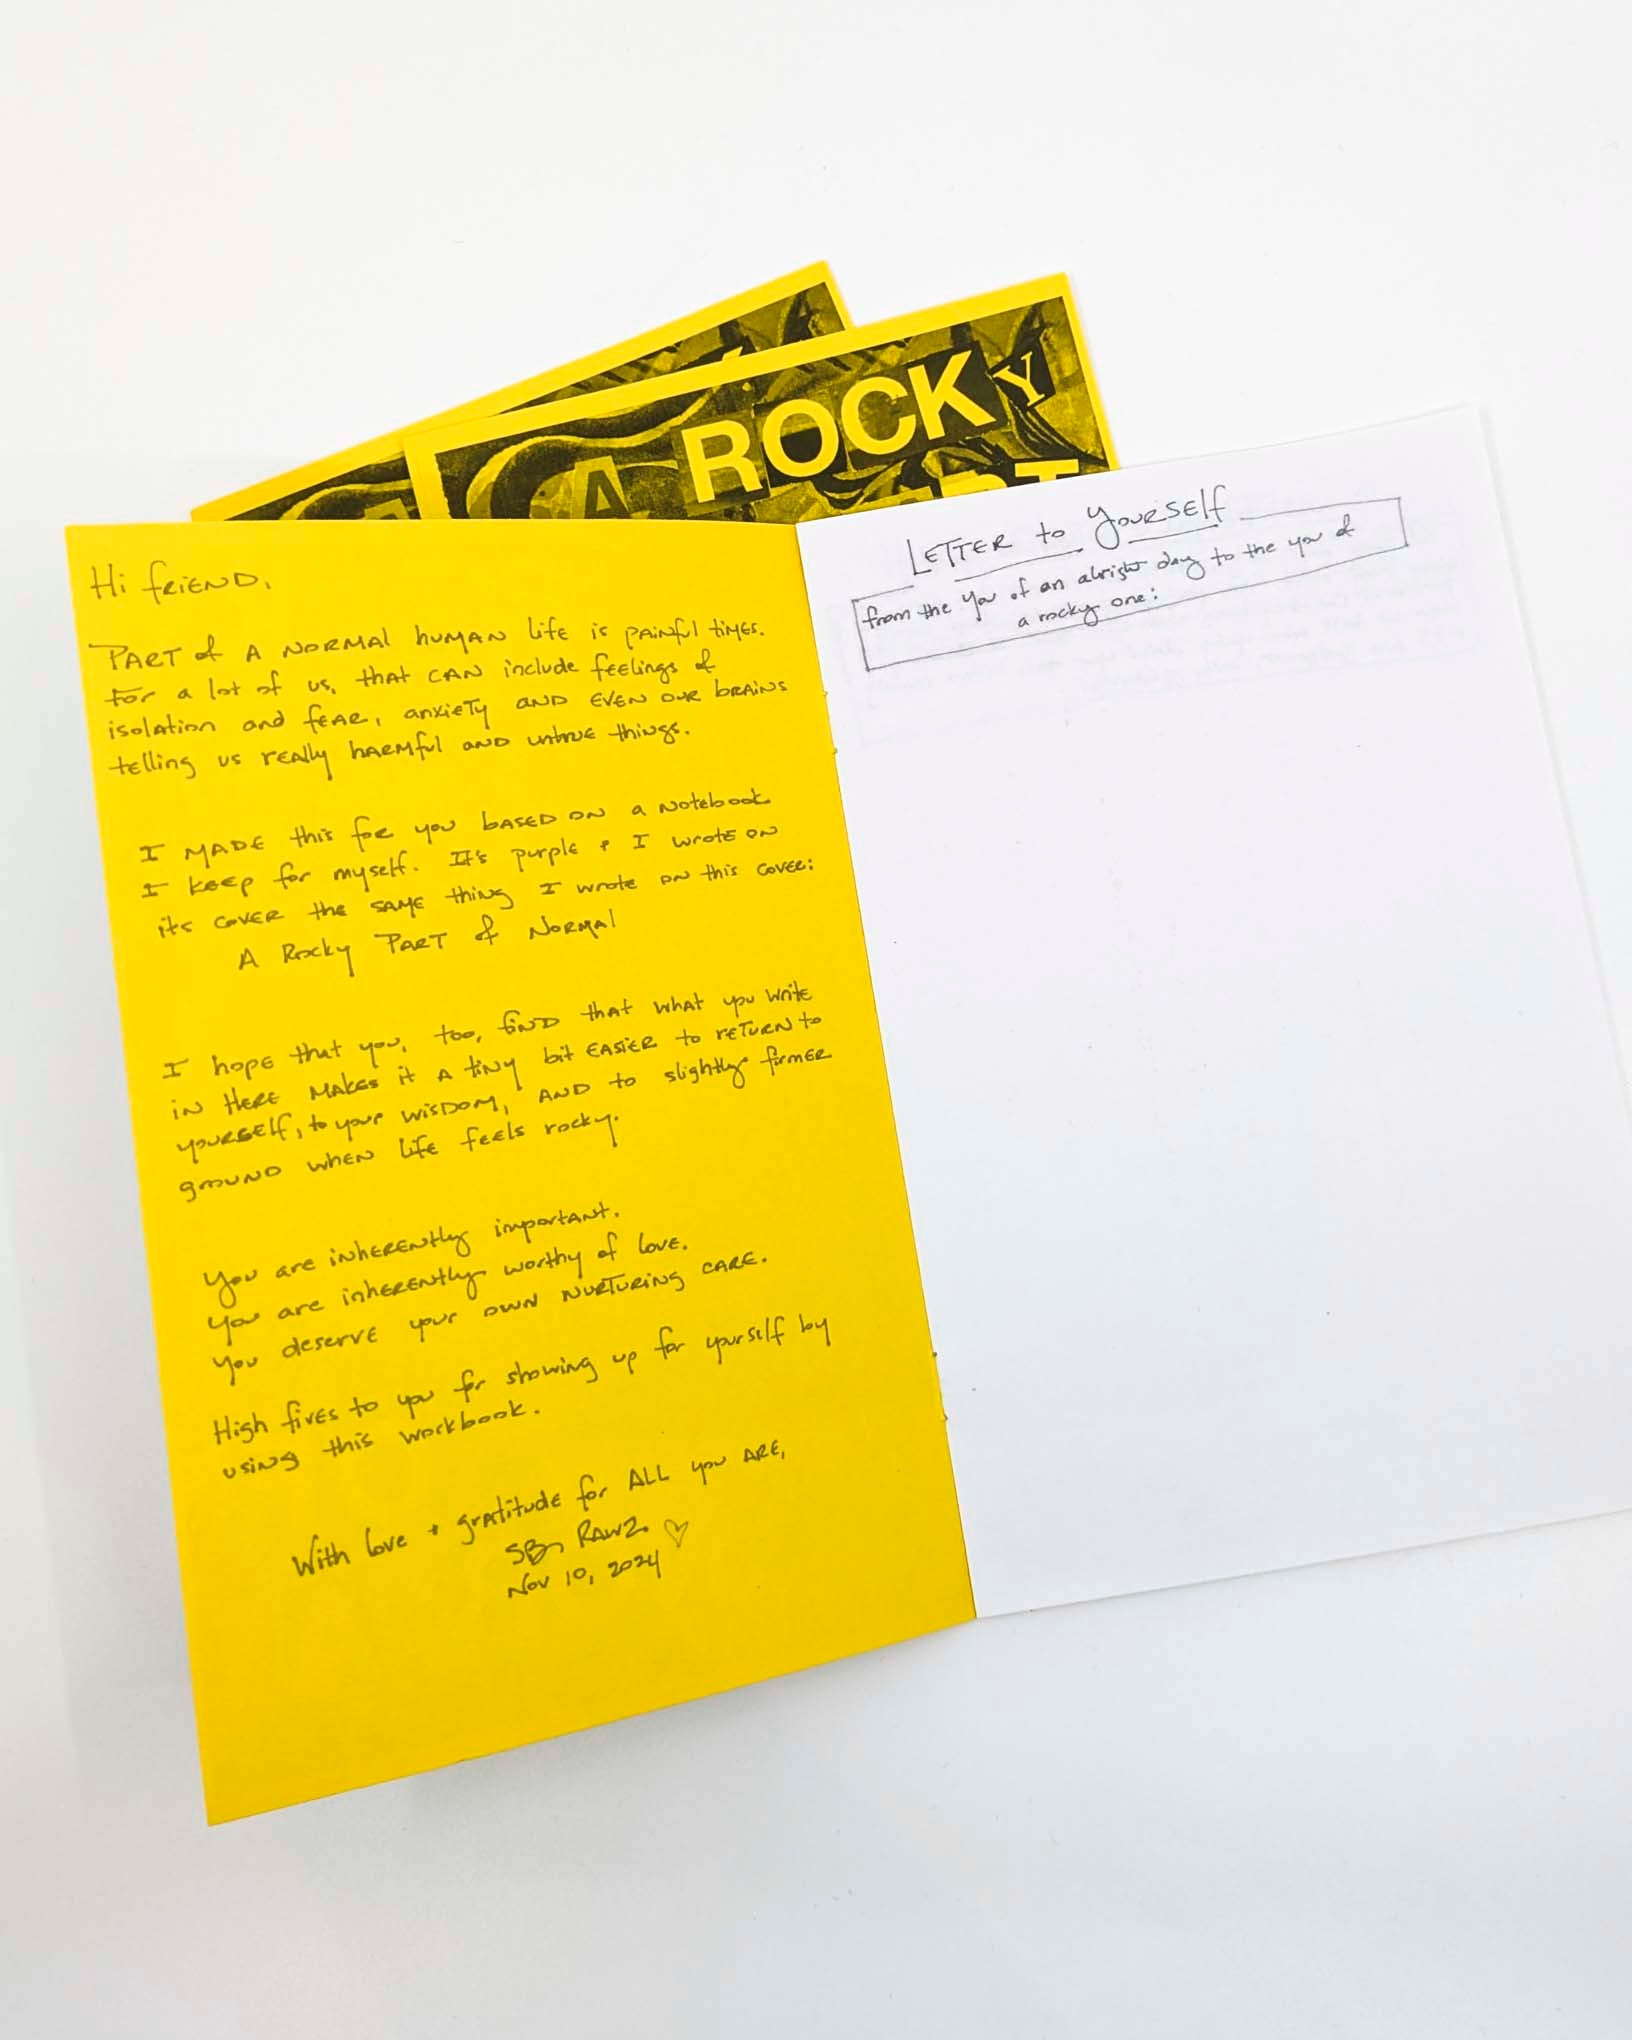 A ROCKY
Hi friend,
Part of a normal human life is painful times.
For a lot of us, that can include feelings of
isolation and fear, anxiety and even our brains
telling us really harmful and untrue things.
I made this for you based on a notebook
I keep for myself. It's purple + I wrote on
its cover the same thing I wrote on this cover:
A Rocky Part of Normal
I hope that you, too, find that what you write
in here makes it a tiny bit easier to return to
yourself, to your wisdom, and to slightly firmer
ground when life feels rocky.
You are inherently important.
You are inherently worthy of love.
You deserve your own nurturing care.
High fives to you for showing up for yourself by
using this workbook.
With love + gratitude for ALL you are,
Nov 10, 2024
Letter to Yourself
from the you of an alright day to the you of
a rocky one: